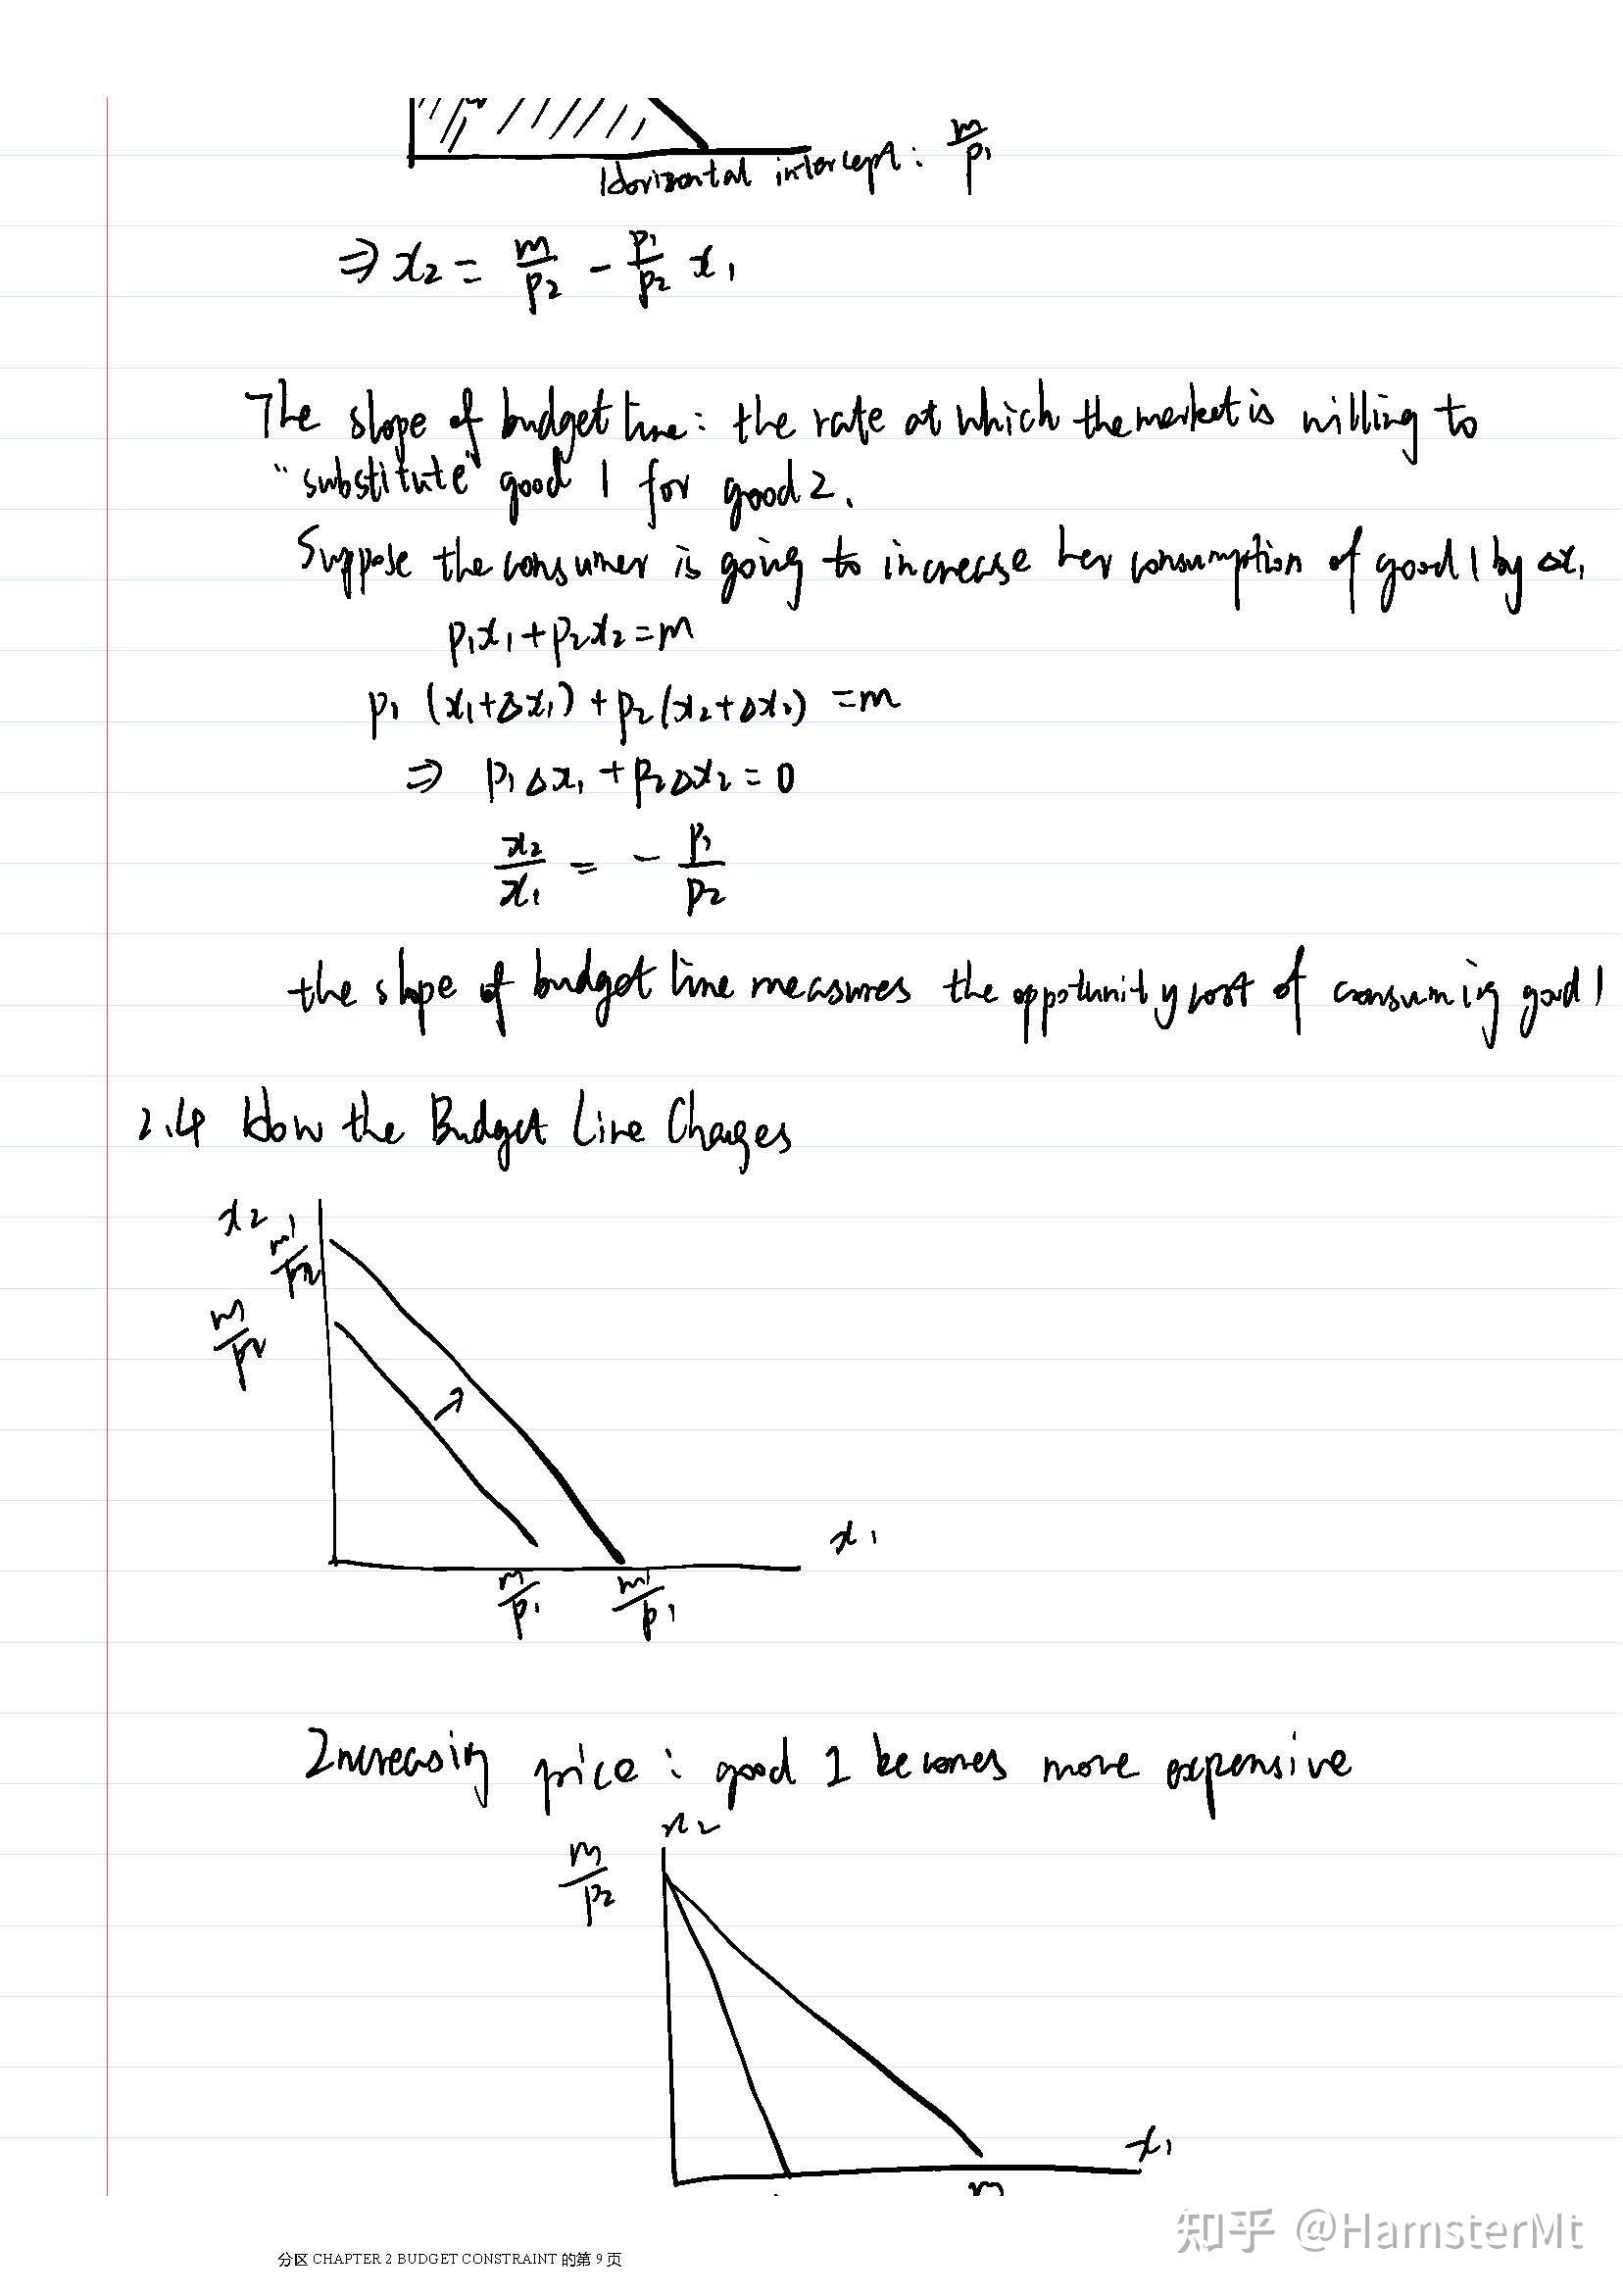 Horizontal intercept: m/p₁
⇒ x₂ = m/p₂ - p₁/p₂ x₁
The slope of budget line: the rate at which the market is willing to
"substitute" good 1 for good 2.
Suppose the consumer is going to increase her consumption of good 1 by Δx₁
p₁x₁+p₂x₂=m
p₁(x₁+Δx₁)+p₂(x₂+Δx₂)=m
⇒ p₁Δx₁+p₂Δx₂=0
x₂/x₁ = - p₁/p₂
the slope of budget line measures the oppotunity cost of consuming good 1
2.4 How the Budget Line Changes
x₂
m'/p₂
m/p₂
x₁
m/p₁ m'/p₁
Increasing price: good 1 becomes more expensive
x₂
m/p₂
x₁
m
知乎 @HamsterMt
分区 CHAPTER 2 BUDGET CONSTRAINT 的第 9 页